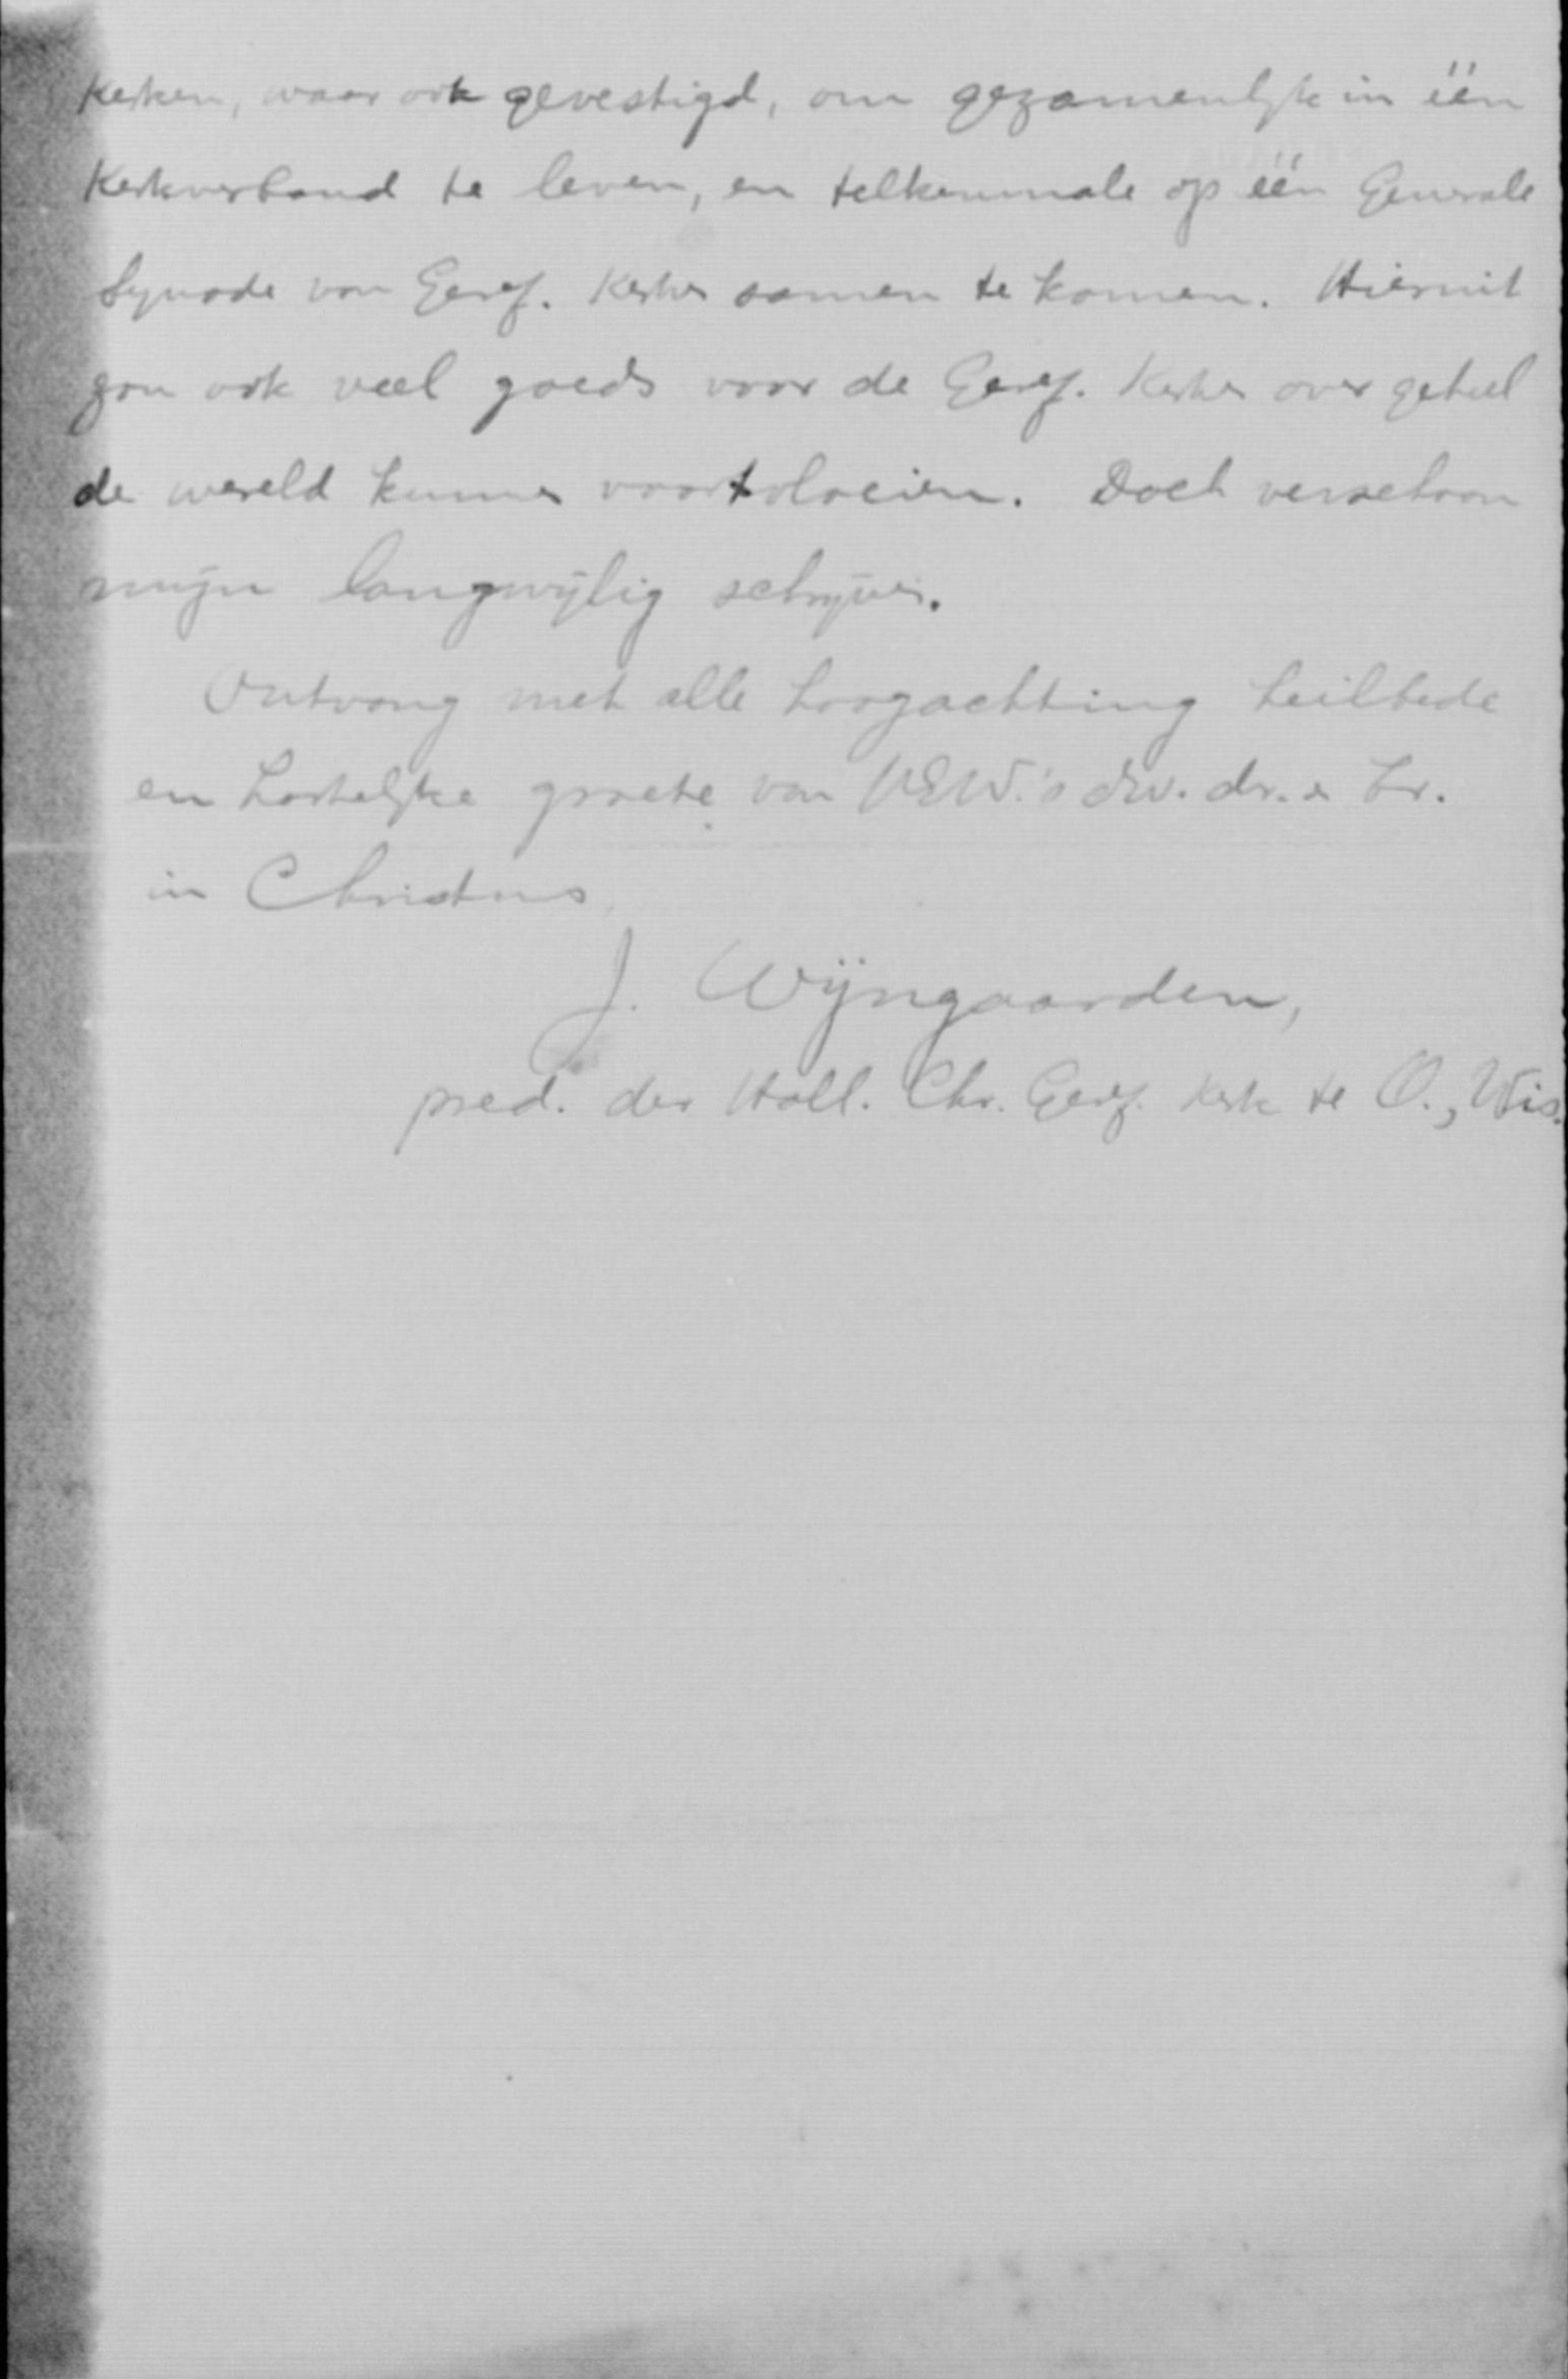 Kerken, waar ook gevestigd, om gezamenlijk in één
Kerkverband te leven, en telkenmale op één Generale
Synode van Geref. Kerken samen te komen. Hieruit
zou ook veel goeds voor de Geref. Kerken over geheel
de wereld kunnen voortvloeien. Doch verschoon
mijn langwijlig schrijven.
Ontvang met alle hoogachting heilbede
en hartelijke groete van UEW.'s dw. dr. & br.
in Christus,
J. Wijngaarden,
pred. der Holl. Chr. Geref. Kerk te O., Wis.